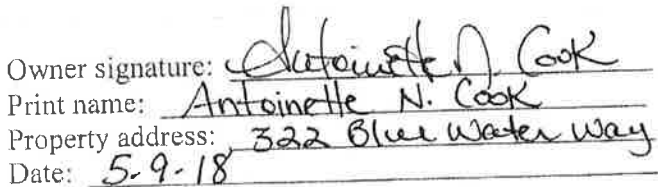 Owner signature: Antoinette N. Cook
Print name: Antoinette N. Cook
Property address: 322 Blue Water Way
Date: 5-9-18